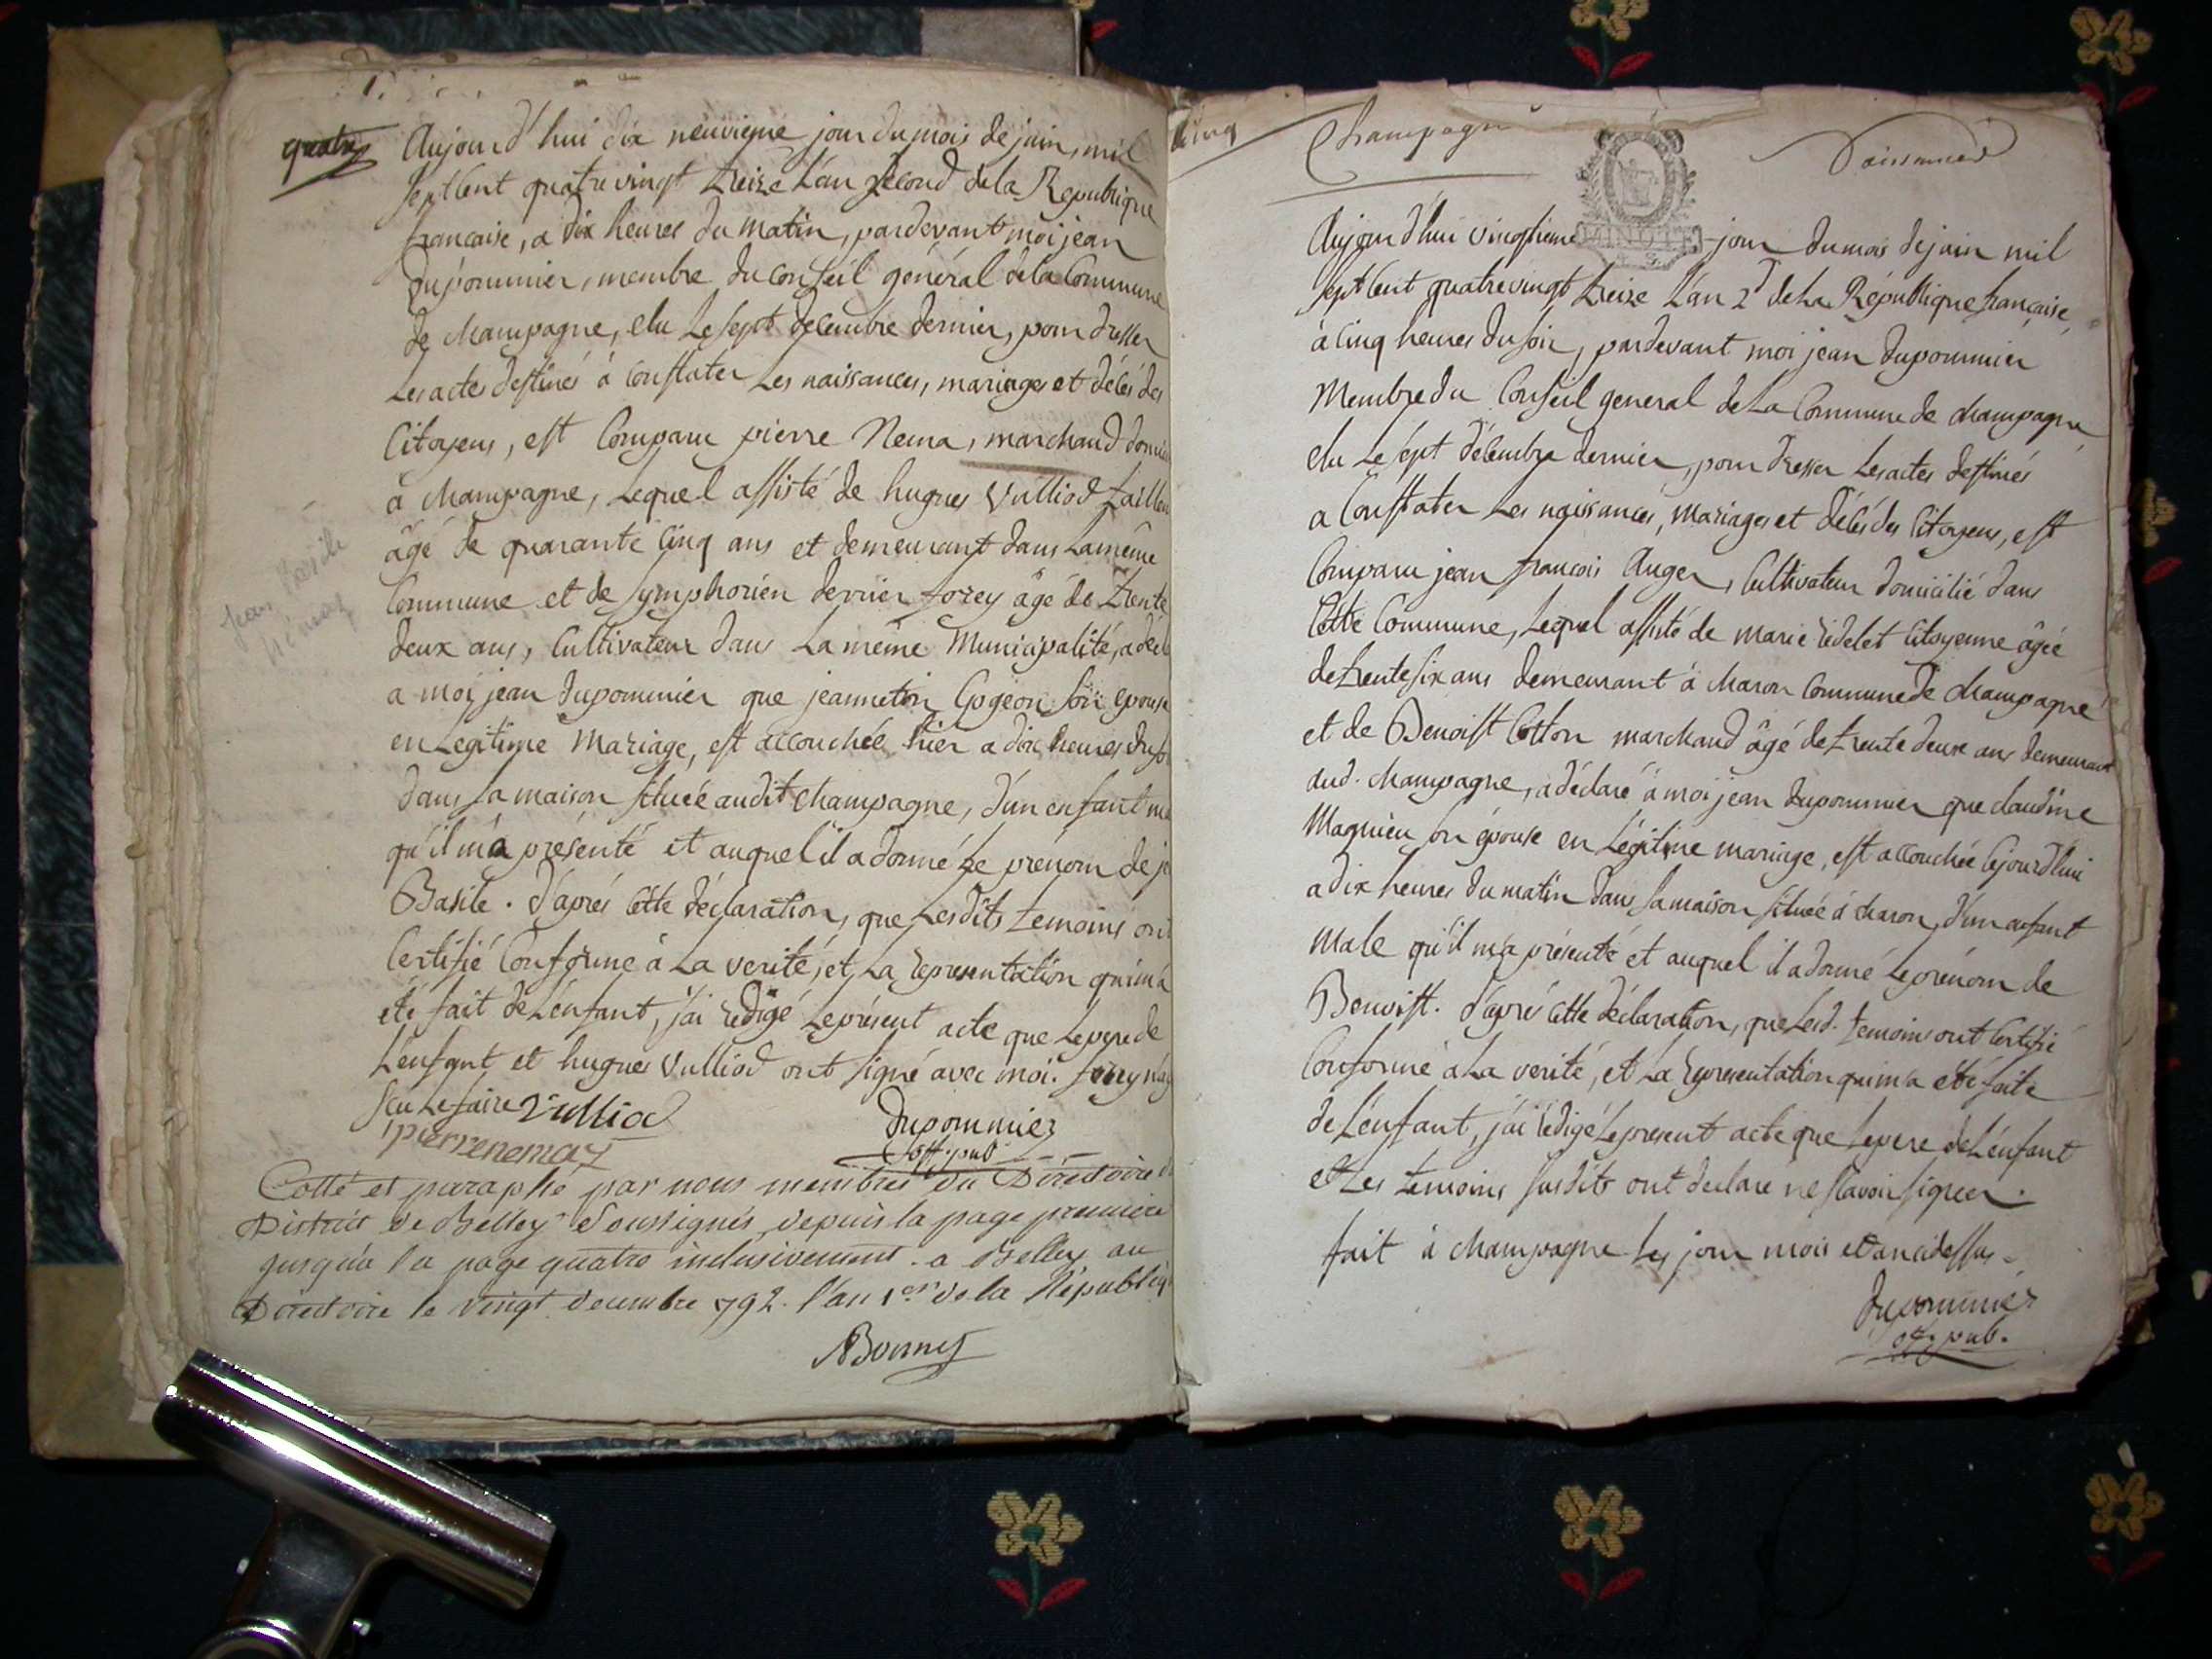 quatre
Aujourd'hui dix neuvieme jour du mois de juin, mil
sept Cent quatre vingt treize L'an second de la Republique
francaise, a dix heures du matin, pardevant moi jean
Dupommier, membre du Conseil général de la Commune
de Champagne, elu Le sept decembre dernier, pour dresser
Les actes destinés à Constater Les naissances, mariages et décés des
Citoyens, est Comparu pierre Nema, marchand
à Champagne, Lequel assisté de hugues Vulliod
âgé de quarante Cinq ans et demeurant dans La même
Commune et de Symphorien derrier forey âgé de trente
deux ans, Cultivateur dans La même Municipalité,
a moi jean Dupommier que jeanneton Gogeon son epouse
en Legitime Mariage, est accouchée hier a dix heures du
dans sa maison située audit Champagne, d'un enfant
qu'il m'a présenté et auquel il a donné Le prénom de
Basile. D'aprés Cette déclaration, que Lesdits temoins ont
Certifié Conforme à La verité, et La representation qui m'a
été fait de L'enfant, j'ai redigé Le présent acte que Le pere de
L'enfant et hugues Vulliod ont signé avec moi. forey
sçu Le faire Vulliod
pierre nemoz
Dupommier
off. pub
Cotté et paraphé par nous membres du Directoire
District de Belley Soussignés, depuis la page premiere
jusqu'a la page quatre inclusivement. a Belley au
Directoire le vingt decembre 792. l'an 1er de la
Bonnet
jean Basile
némoz
Cinq
Champagne
Naissances
MINUTE
Aujourd'hui vingtieme jour du mois de juin mil
sept Cent quatre vingt treize L'an 2d de La République française,
à Cinq heures du soir, pardevant moi jean dupommier
Membre du Conseil general de La Commune de Champagne,
elu Le sept décembre dernier, pour dresser Les actes destinés
a Constater Les naissances, mariages et décés des Citoyens, est
Comparu jean francois Auger, Cultivateur domicilié dans
Cette Commune, Lequel assisté de marie redelet Citoyenne âgée
de trente six ans demeurant à Charon Commune de Champagne
et de Benoist Cotton marchand âgé de trente deux ans demeurant
aud. Champagne, a déclaré à moi jean dupommier que claudine
Magnieu son épouse en Légitime mariage, est accouchée Cejourd'hui
a dix heures du matin dans sa maison située à Charon, d'un enfant
Male qu'il m'a présenté et auquel il a donné Le prénom de
Benoist. D'aprés Cette déclaration, que Lesd. temoins ont Certifié
Conforme à La verité, et La representation qui m'a été faite
de L'enfant, j'ai redigé Le present acte que Le pere de L'enfant
et Les temoins susdits ont declaré ne sçavoir signer.
fait à Champagne Les jour mois et an cidessus.
Dupommier
off. pub.